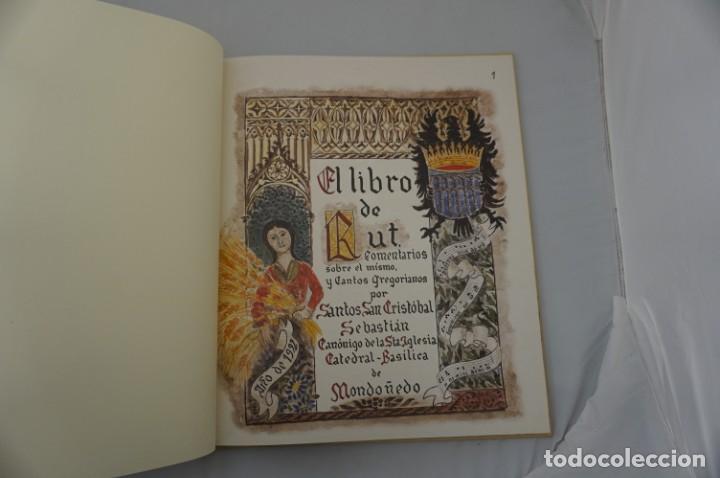 1
El libro
de
Rut.
Comentarios
sobre el mismo,
y Cantos Gregorianos
por
Santos San Cristóbal
Sebastián
Canónigo de la Sta Iglesia
Catedral-Basílica
de
Mondoñedo
Año de 1992
todocoleccion.net